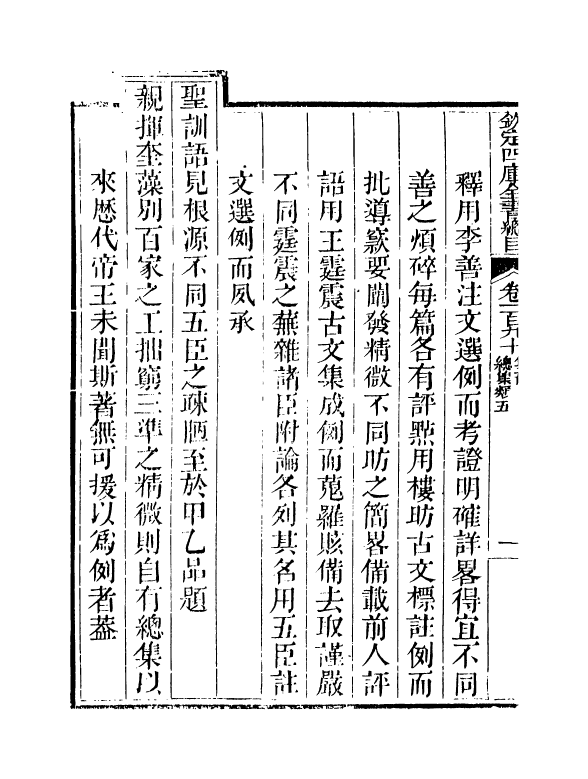 欽定四庫全書總目
卷一百九十
總集類五
一
釋用李善注文選例而考證明確詳畧得宜不同
善之煩碎每篇各有評點用樓昉古文標註例而
批導窾要闡發精微不同昉之簡畧備載前人評
語用王霆震古文集成例而蒐羅賅備去取謹嚴
不同霆震之蕪雜諸臣附論各列其名用五臣註
文選例而夙承
聖訓語見根源不同五臣之疎陋至於甲乙品題
親揮奎藻别百家之工拙窮三準之精微則自有總集以
來歴代帝王未聞斯著無可援以爲例者葢